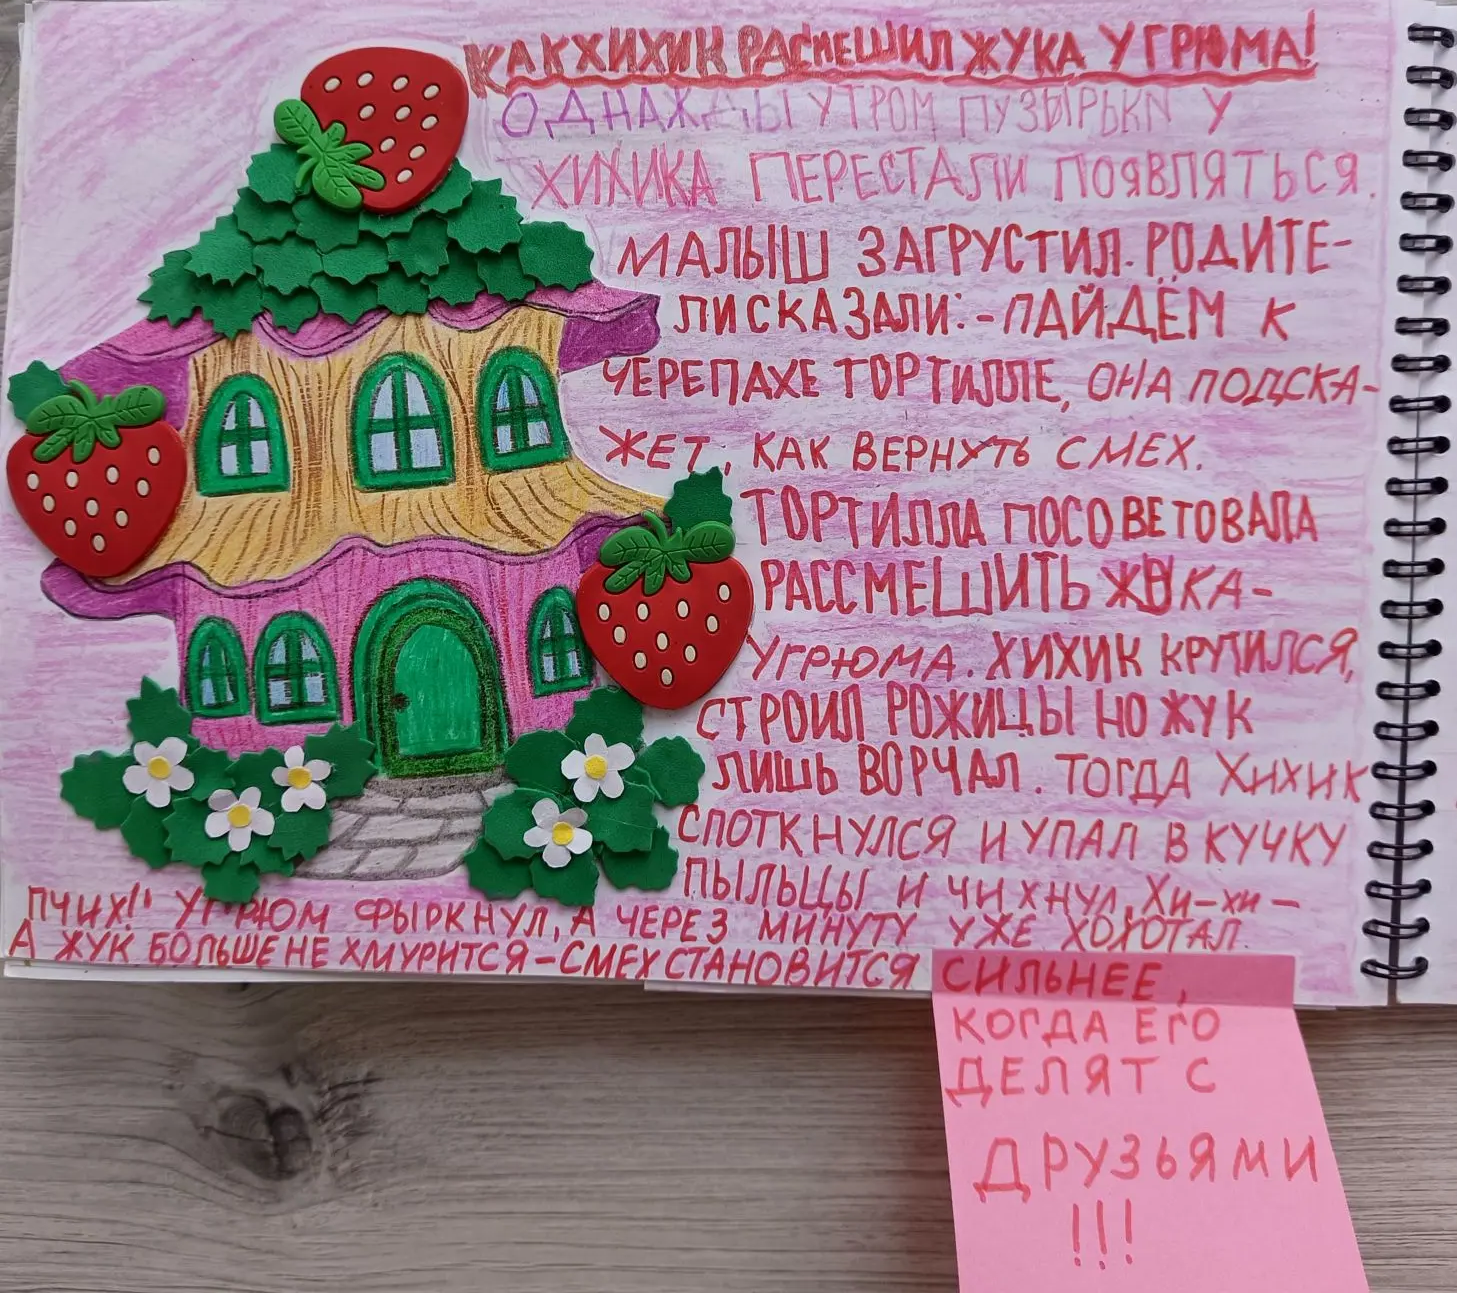 КАК ХИХИК РАСМЕШИЛ ЖУКА УГРЮМА!
ОДНАЖДЫ УТРОМ ПУЗЫРЬКИ У
ХИХИКА ПЕРЕСТАЛИ ПОЯВЛЯТЬСЯ.
МАЛЫШ ЗАГРУСТИЛ. РОДИТЕ-
ЛИ СКАЗАЛИ: - ПАЙДЁМ К
ЧЕРЕПАХЕ ТОРТИЛЛЕ, ОНА ПОДСКА-
ЖЕТ, КАК ВЕРНУТЬ СМЕХ.
ТОРТИЛЛА ПОСОВЕТОВАЛА
РАССМЕШИТЬ ЖУКА-
УГРЮМА. ХИХИК КРУТИЛСЯ,
СТРОИЛ РОЖИЦЫ НО ЖУК
ЛИШЬ ВОРЧАЛ. ТОГДА ХИХИК
СПОТКНУЛСЯ И УПАЛ В КУЧКУ
ПЫЛЬЦЫ И ЧИХНУЛ, ХИ-ХИ-
ПЧИХ!" УГРЮМ ФЫРКНУЛ, А ЧЕРЕЗ МИНУТУ УЖЕ ХОХОТАЛ.
А ЖУК БОЛЬШЕ НЕ ХМУРИТСЯ - СМЕХ СТАНОВИТСЯ СИЛЬНЕЕ,
КОГДА ЕГО
ДЕЛЯТ С
ДРУЗЬЯМИ
!!!